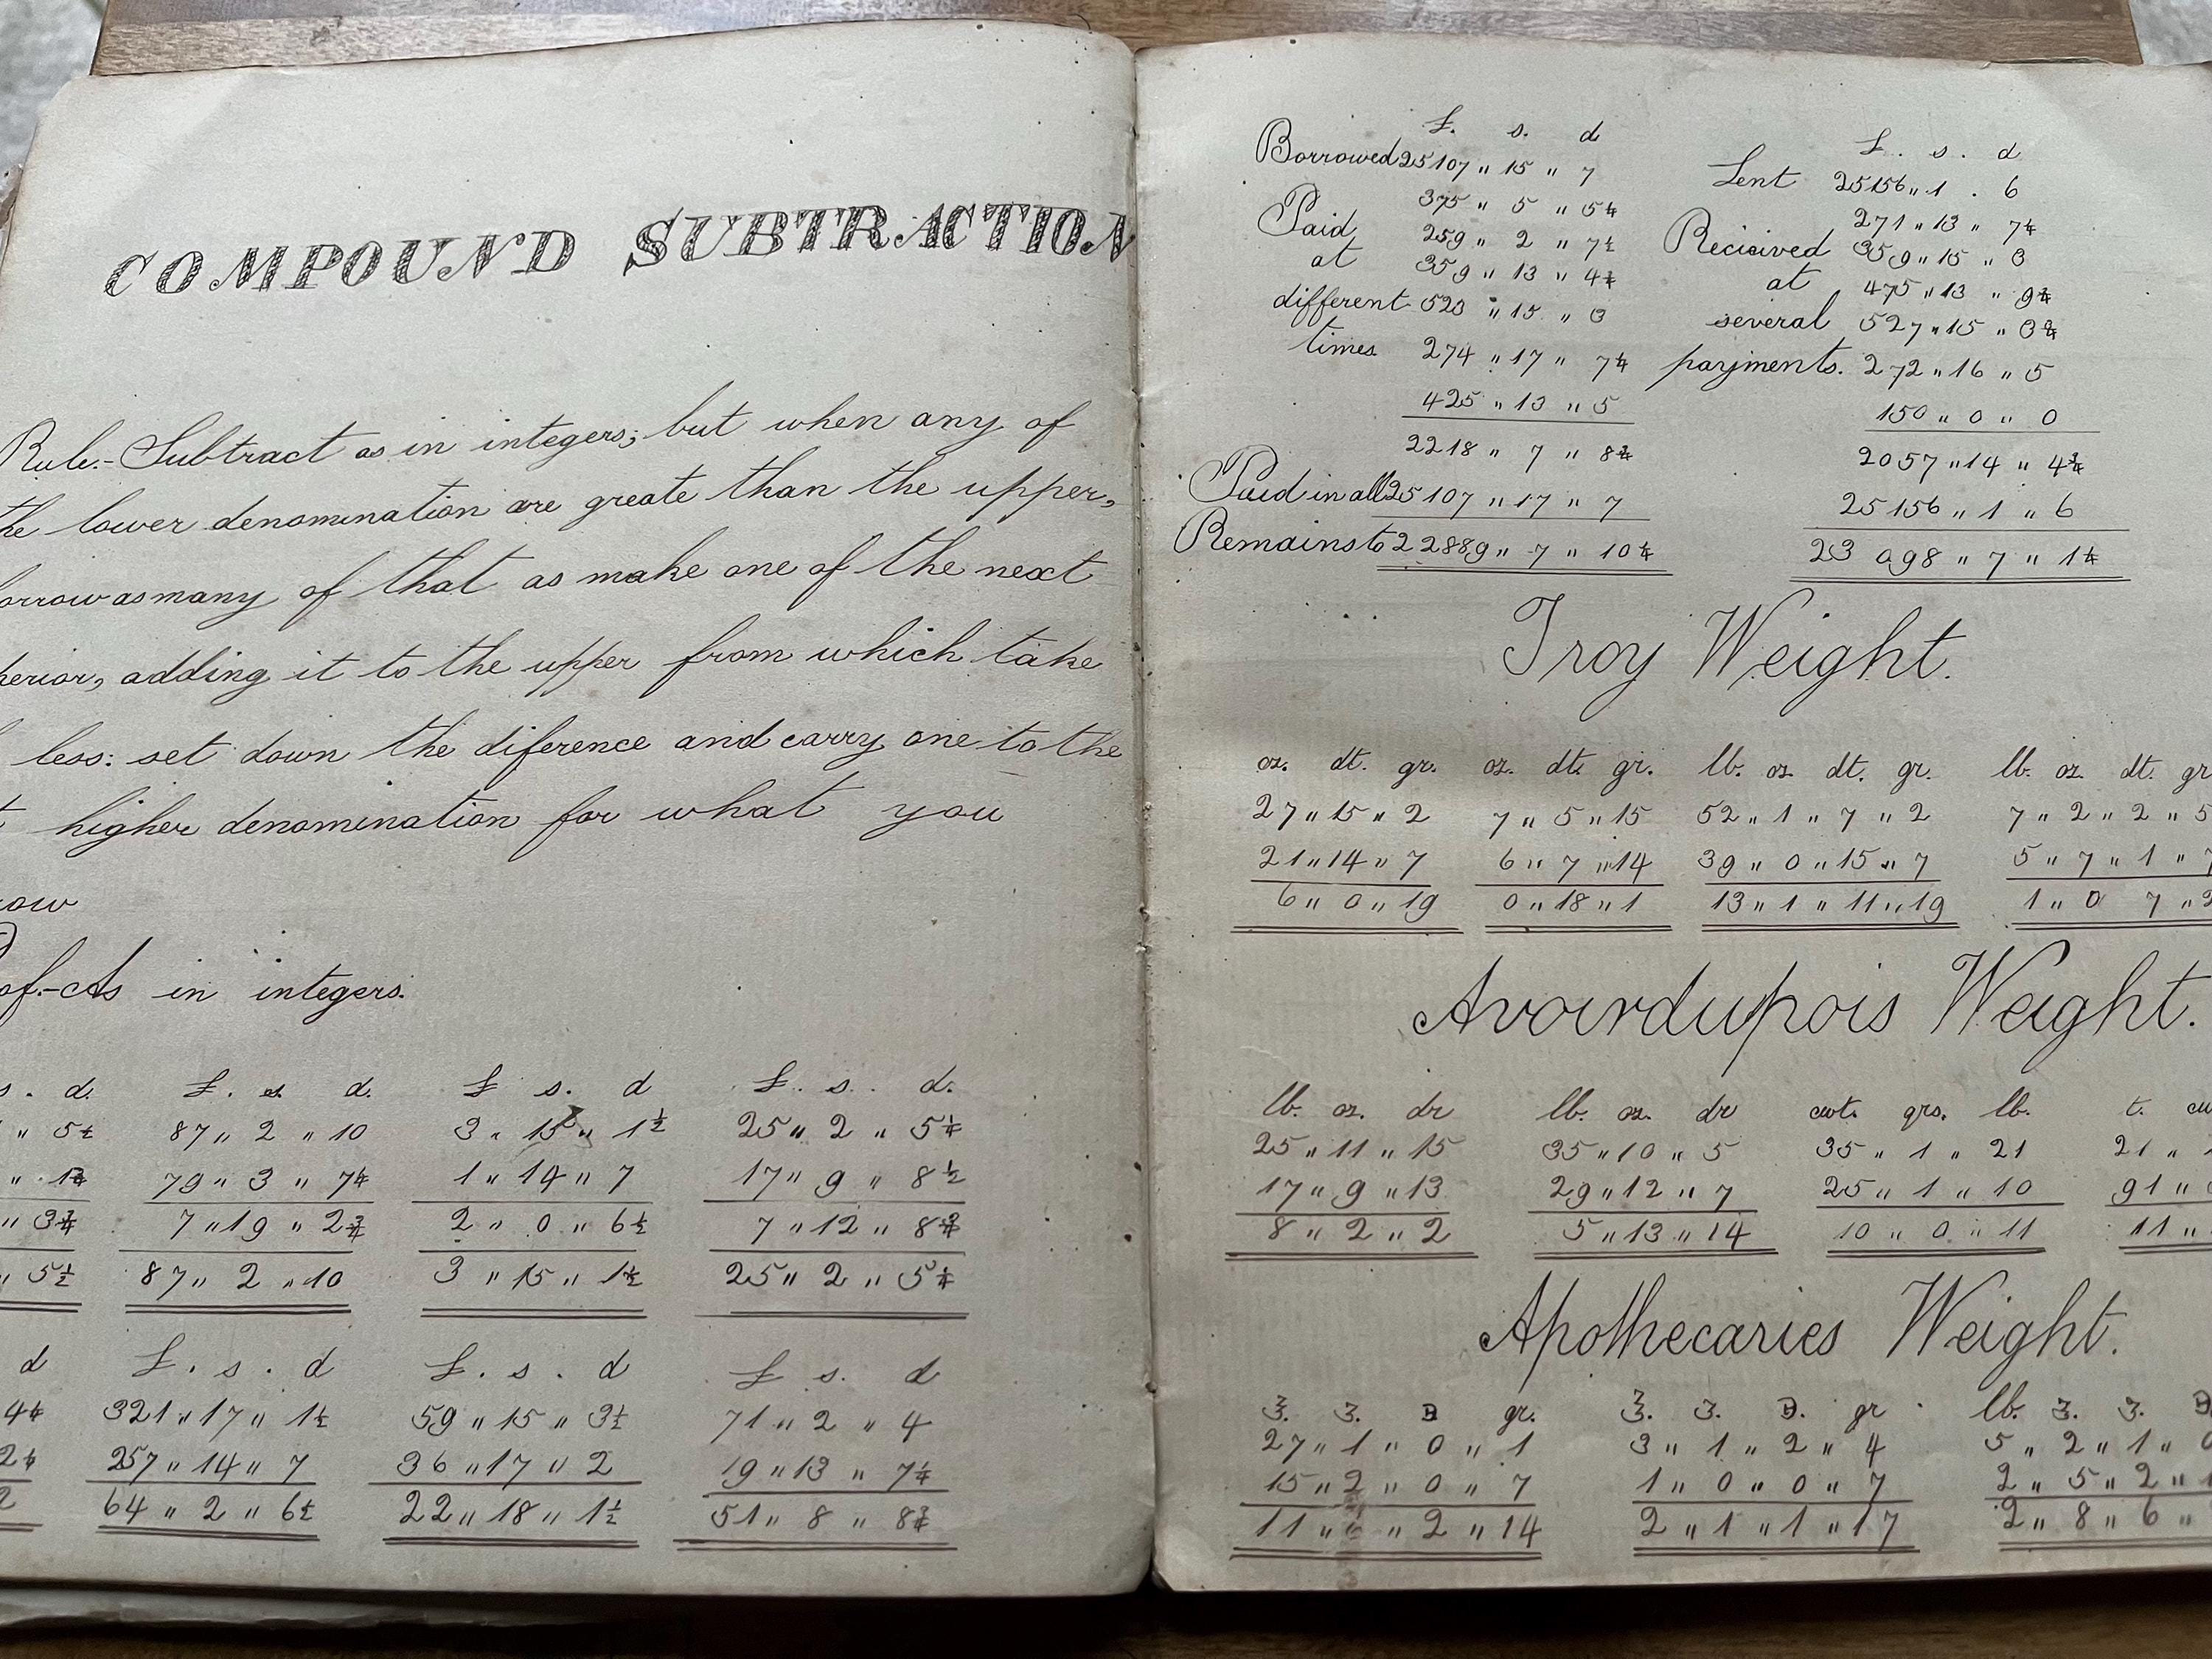 COMPOUND SUBTRACTION
Rule.- Subtract as in integers; but when any of
the lower denomination are greate than the upper,
orrow as many of that as make one of the next
perior, adding it to the upper from which take
less: set down the diference and carry one to the
t higher denomination for what you
row
of.- As in integers.
s. d. £. s. d. £ s. d £. s. d.
" 5½ 87 " 2 " 10 3 " 15 " 1½ 25 " 2 " 5¼
79 " 3 " 7¼ 1 " 14 " 7 17 " 9 " 8½
" 3¾ 7 " 19 " 2¾ 2 " 0 " 6½ 7 " 12 " 8¾
" 5½ 87 " 2 " 10 3 " 15 " 1½ 25 " 2 " 5¼
d £. s. d £. s. d £ s. d
4¼ 321 " 17 " 1½ 59 " 15 " 3½ 71 " 2 " 4
2¼ 257 " 14 " 7 36 " 17 " 2 19 " 13 " 7¼
2 64 " 2 " 6½ 22 " 18 " 1½ 51 " 8 " 8¾
£. s. d
Borrowed 25107 " 15 " 7
375 " 5 " 5¼
Paid 259 " 2 " 7½
at 359 " 13 " 4¼
different 523 " 15 " 3
times 274 " 17 " 7¼
425 " 13 " 5
2218 " 7 " 8¾
Paid in all 25107 " 17 " 7
Remains to 22889 " 7 " 10¼
£. s. d
Lent 25156 " 1 . 6
271 " 13 " 7¼
Recieived 359 " 15 " 3
at 475 " 13 " 9¾
several 527 " 15 " 3¾
payments. 272 " 16 " 5
150 " 0 " 0
2057 " 14 " 4¾
25156 " 1 " 6
23098 " 7 " 1¼
Troy Weight.
oz. dt. gr. oz. dt. gr. lb. oz. dt. gr. lb. oz. dt. gr
27 " 15 " 2 7 " 5 " 15 52 " 1 " 7 " 2 7 " 2 " 2 " 5
21 " 14 " 7 6 " 7 " 14 39 " 0 " 15 " 7 5 " 7 " 1 " 7
6 " 0 " 19 0 " 18 " 1 13 " 1 " 11 " 19 1 " 0 7 " 2
Avoirdupois Weight.
lb. oz. dr lb. oz. dr cwt. qrs. lb. t. cw
25 " 11 " 15 35 " 10 " 5 35 " 1 " 21 21 " 1
17 " 9 " 13 29 " 12 " 7 25 " 1 " 10 91 "
8 " 2 " 2 5 " 13 " 14 10 " 0 " 11 11 "
Apothecaries Weight.
℥. ʒ. ℈ gr. ℥. ʒ. ℈. gr lb. ℥. ʒ. ℈
27 " 1 " 0 " 1 3 " 1 " 2 " 4 5 " 2 " 1 "
15 " 2 " 0 " 7 1 " 0 " 0 " 7 2 " 5 " 2 " 1
11 " 6 " 2 " 14 2 " 1 " 1 " 17 2 " 8 " 6 "